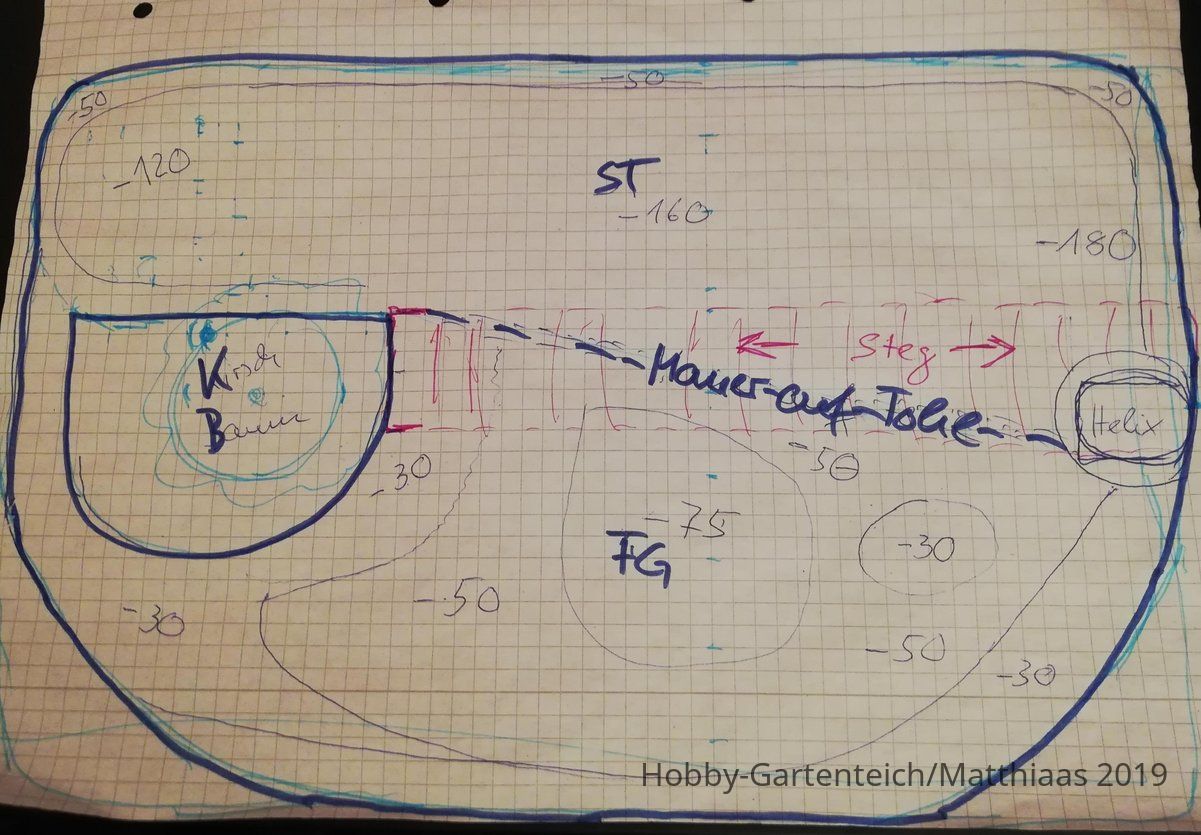 -50
-50
-50
-120
ST
-160
-180
Kirsch
Baum
Steg
Mauer auf Folie
Helix
-30
-50
-75
FG
-30
-50
-30
-50
-30
Hobby-Gartenteich/Matthiaas 2019